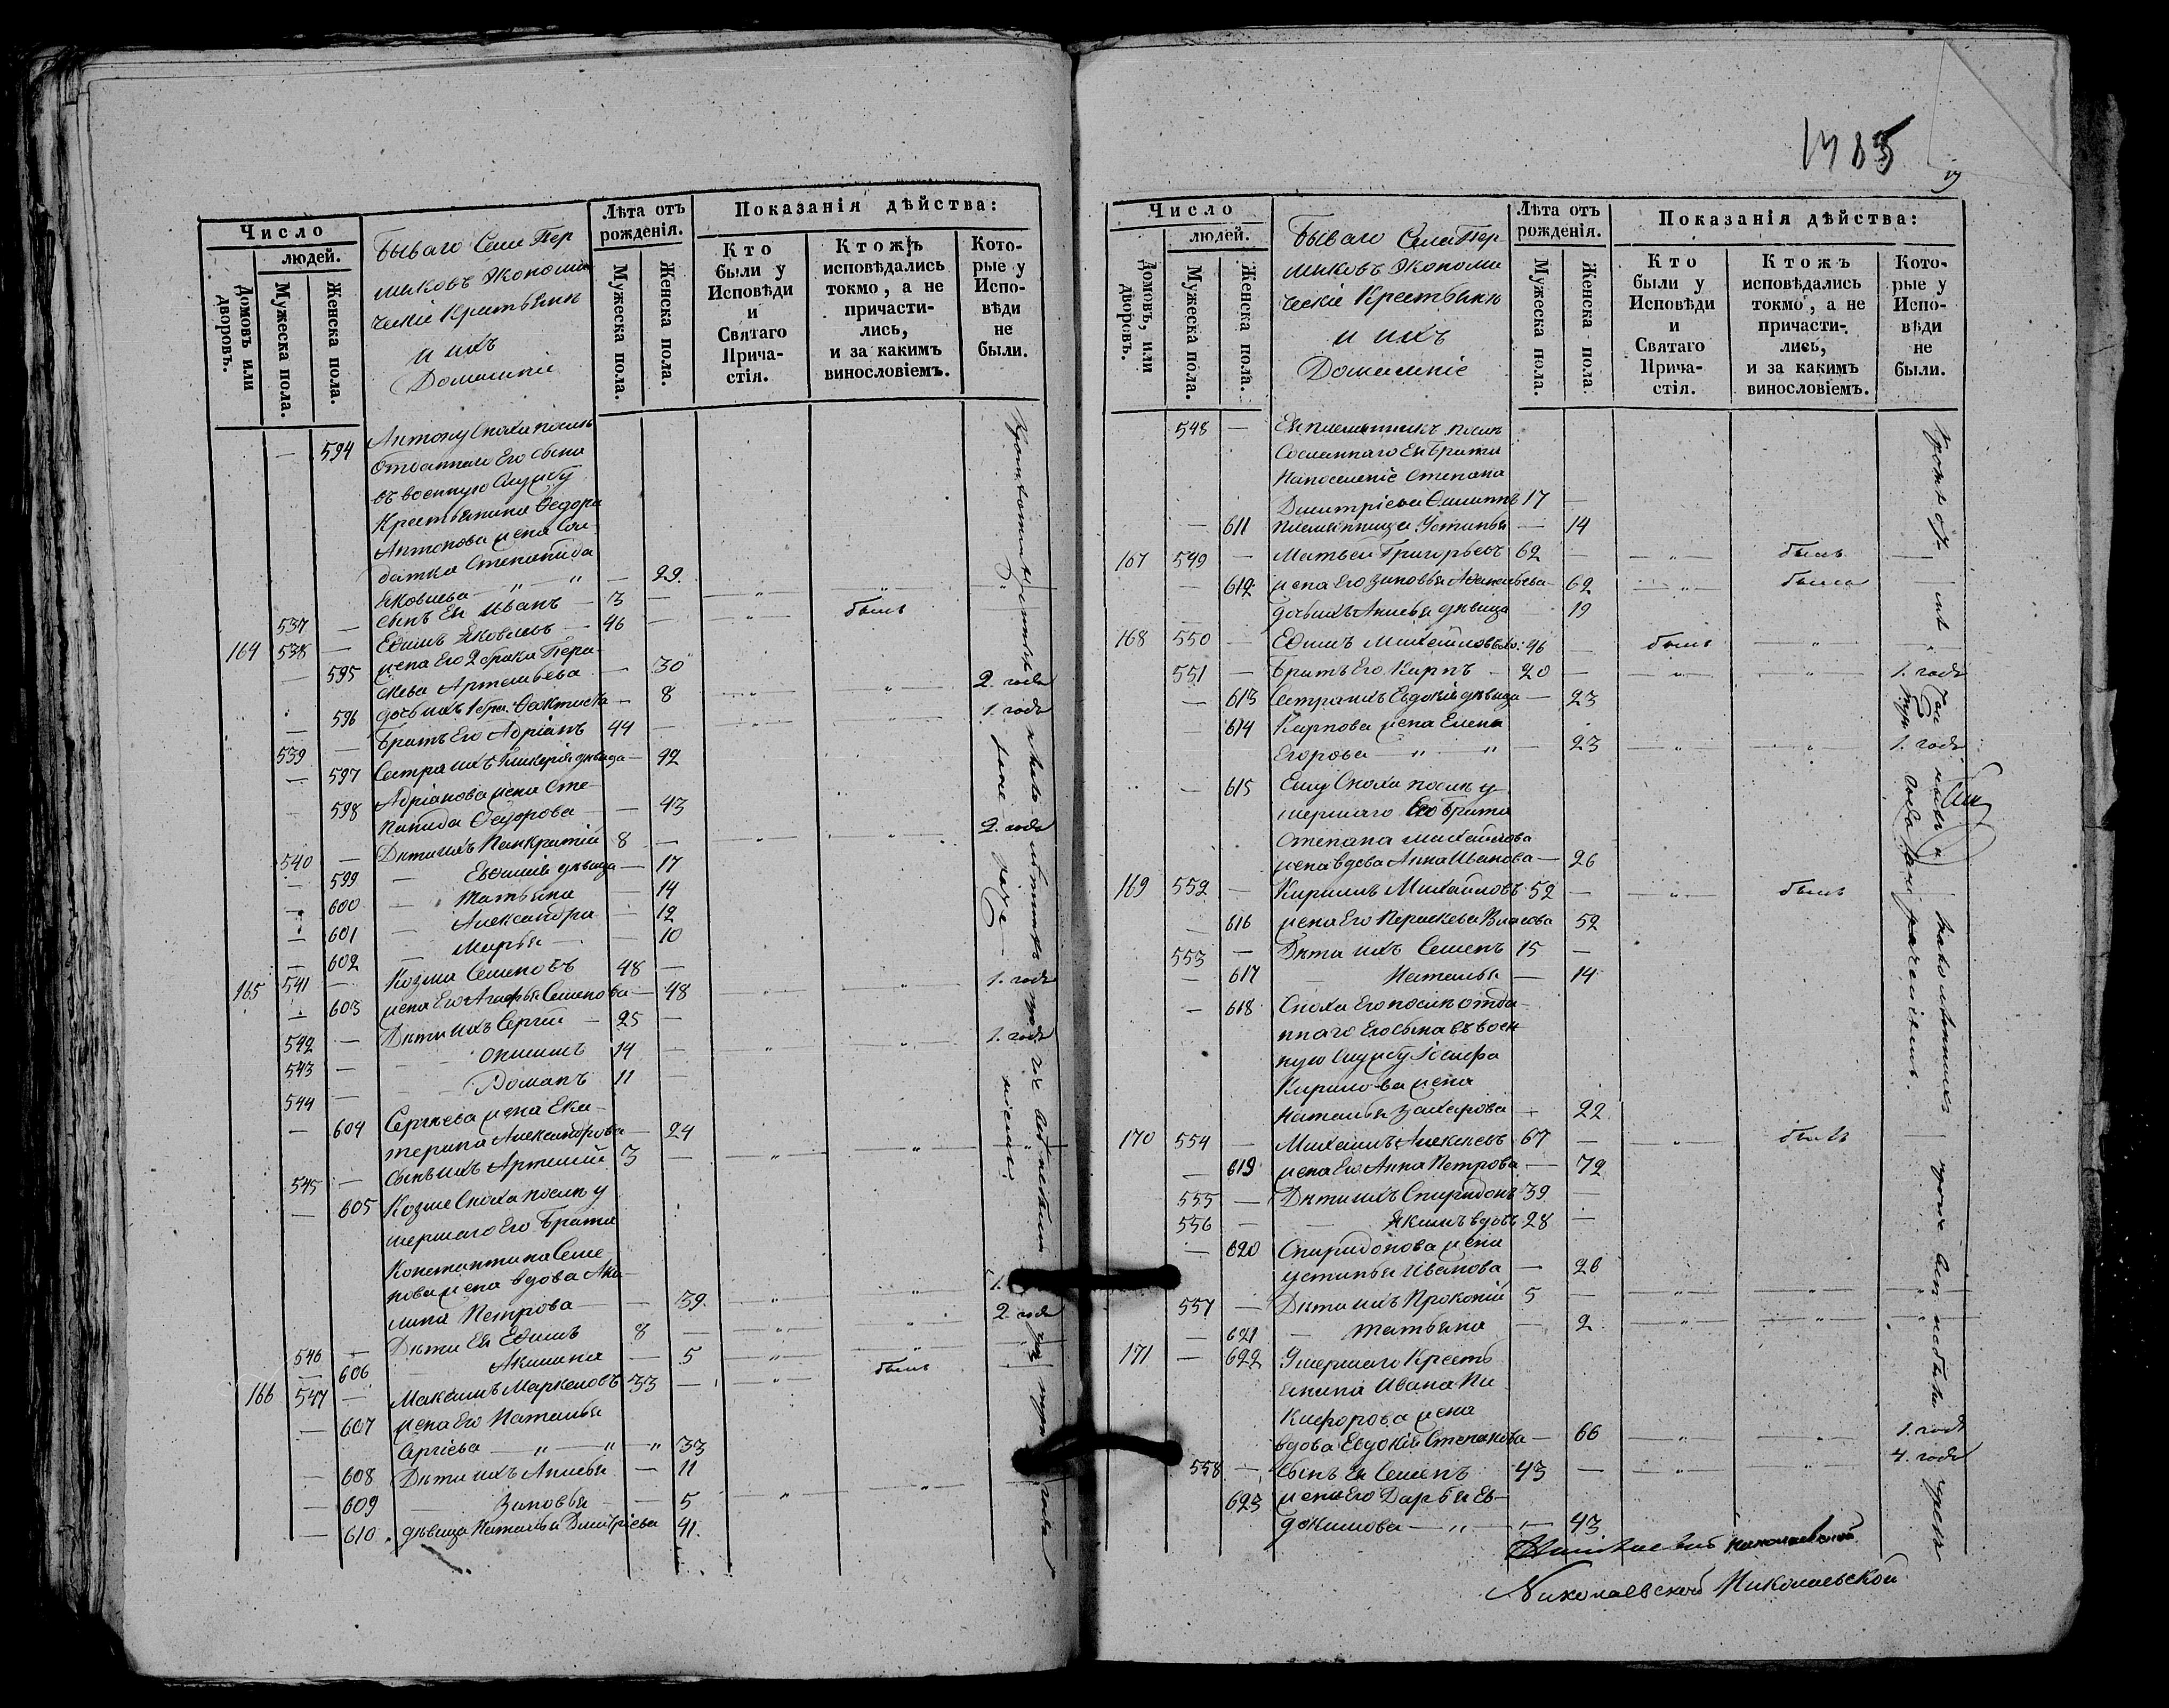 Число
людей.
Домовъ или дворовъ.
Мужеска пола.
Женска пола.
Бываго Села Пер
мыковъ Экономи
ческіе Крестьяни
и ихъ
Домашніе
Лѣта отъ рожденія.
Мужеска пола.
Женска пола.
Показанія дѣйства:
Кто были у Исповѣди и Святаго Причастія.
Ктожъ исповѣдались токмо, а не причастились, и за какимъ винословіемъ.
Которые у Исповѣди не были.
— 594 Антону Сноха послѣ
отданнаго Его сына
въ военную Службу
Крестьянина Ѳедора
Антонова жена Сол
датка Степанида
Яковлева — " — " — 29
537 — сынъ Ея Иванъ — 3 —
164 538 — Ефимъ Яковлевъ — 46 — былъ
— 595 жена Его 2 брака Пера
скева Артемьева — 30
— 596 дочь ихъ 1 бра. Ѳоктиста — 8 2. года
539 — Братъ Его Адріанъ 44 — 1. годъ
— 597 Сестра ихъ Гликерія дѣвица — 42
— 598 Адріанова жена Сте
панида Ѳедорова — 43
540 — Дѣти ихъ Панкратій 8 — 2. года
— 599 — Евфимія дѣвица — 17
— 600 — Татьяна — 14
— 601 — Александра — 12
— 602 — Марья — 10
165 541 — Козма Семеновъ 48 — 1. годъ
— 603 жена Его Агафья Семенова — 48
542 — Дѣти ихъ Сергій — 25 — 1. годъ
543 — 14 —
544 — Романъ 11 —
— 604 Сергѣева жена Ека
терина Александрова — 24
545 — Сынъ ихъ Артемій 3 —
— 605 Козме Сноха послѣ у
мершаго Его Брата
Константина Семе
нова жена вдова Аку
лина Петрова — 39. 1.
546 — Дѣти Ея Ефимъ 8 — 2. года
— 606 Акилина — 5
166 547 — Максимъ Маркеловъ 33 — былъ
— 607 жена Его Наталья
Сергіева — " — " — " 33
— 608 Дѣти ихъ Анисья — 11
— 609 — Зиновья — 5
— 610 дѣвица Наталья Дмитріева 41.
1785
Число
людей.
Домовъ, или дворовъ.
Мужеска пола.
Женска пола.
Бываго Села Пер
мыковъ Экономи
ческіе Крестьяни
и ихъ
Домашніе
Лѣта отъ рожденія.
Мужеска пола.
Женска пола
Показанія дѣйства:
Кто были у Исповѣди и Святаго Причастія.
Ктожъ исповѣдались токмо, а не причастились, и за какимъ винословіемъ.
Которые у Исповѣди не были.
548 — Ея племянникъ послѣ
Сосланнаго Ея Брата
На поселеніе Степана
Дмитріева Филиппъ 17 —
— 611 племянница Устинья — 14
167 549 — Матвей Григорьевъ 62 — былъ
— 612 жена Его Зиновья Афанасьева 62 была
дочь ихъ Анисья дѣвица 19
168 550 — Ефимъ Михайловъ 46 — былъ
551 — Братъ Его Карпъ — 20 — 1. годъ
— 613 Сестра ихъ Евдокія дѣвица — 23
— 614 Карпова жена Елена
Егорова — " — " — 23 1. годъ
— 615 Ему Сноха послѣ у
мершаго Его Брата
Степана Михайлова
жена вдова Анна Иванова — 26
169 552 — Кирилъ Михайловъ 52 — былъ
— 616 жена Его Параскева Власова 52
553 — Дѣти ихъ Семенъ 15 —
— 617 Наталья — 14
— 618 Сноха Его послѣ отда
ннаго Его сына въ воен
ную Службу Іосифа
Кирилова жена
Наталья Захарова — 22
170 554 — Михаилъ Алексеевъ 67 — былъ
— 619 жена Его Анна Петрова — 72
555 — Дѣти ихъ Спиридонъ 39 —
556 — Якимъ вдовъ 28 —
— 620 Спиридонова жена
Устинья Иванова — 26
557 — Дѣти ихъ Прокопій 5 —
— 621 — Татьяна — 2
171 — 622 Умершаго Кресть
янина Ивана Ни
кифорова жена
вдова Евдокія Степанова — 66 1. годъ
558 — Сынъ Ея Семенъ 43 — 4. года
623 жена Его Дарья Ев
докимова — " — " — 43
Николаевской
Николаевской Николаевской